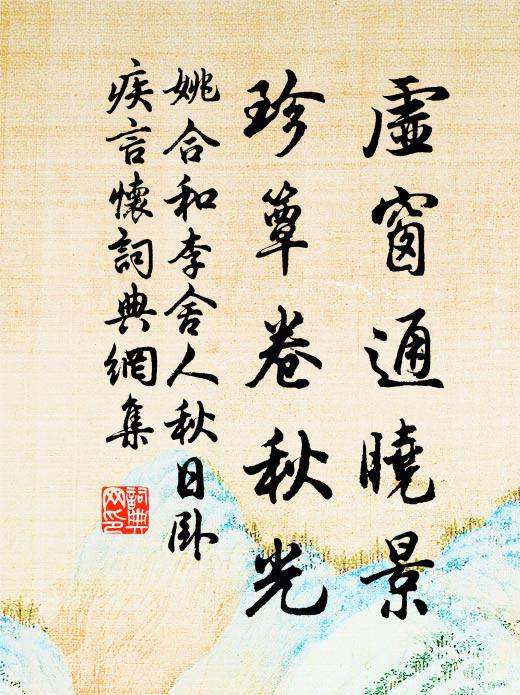 虛窗通曉景
珍簟卷秋光
姚合和李舍人秋日卧
疾言懷詞典網集
詞典
网印